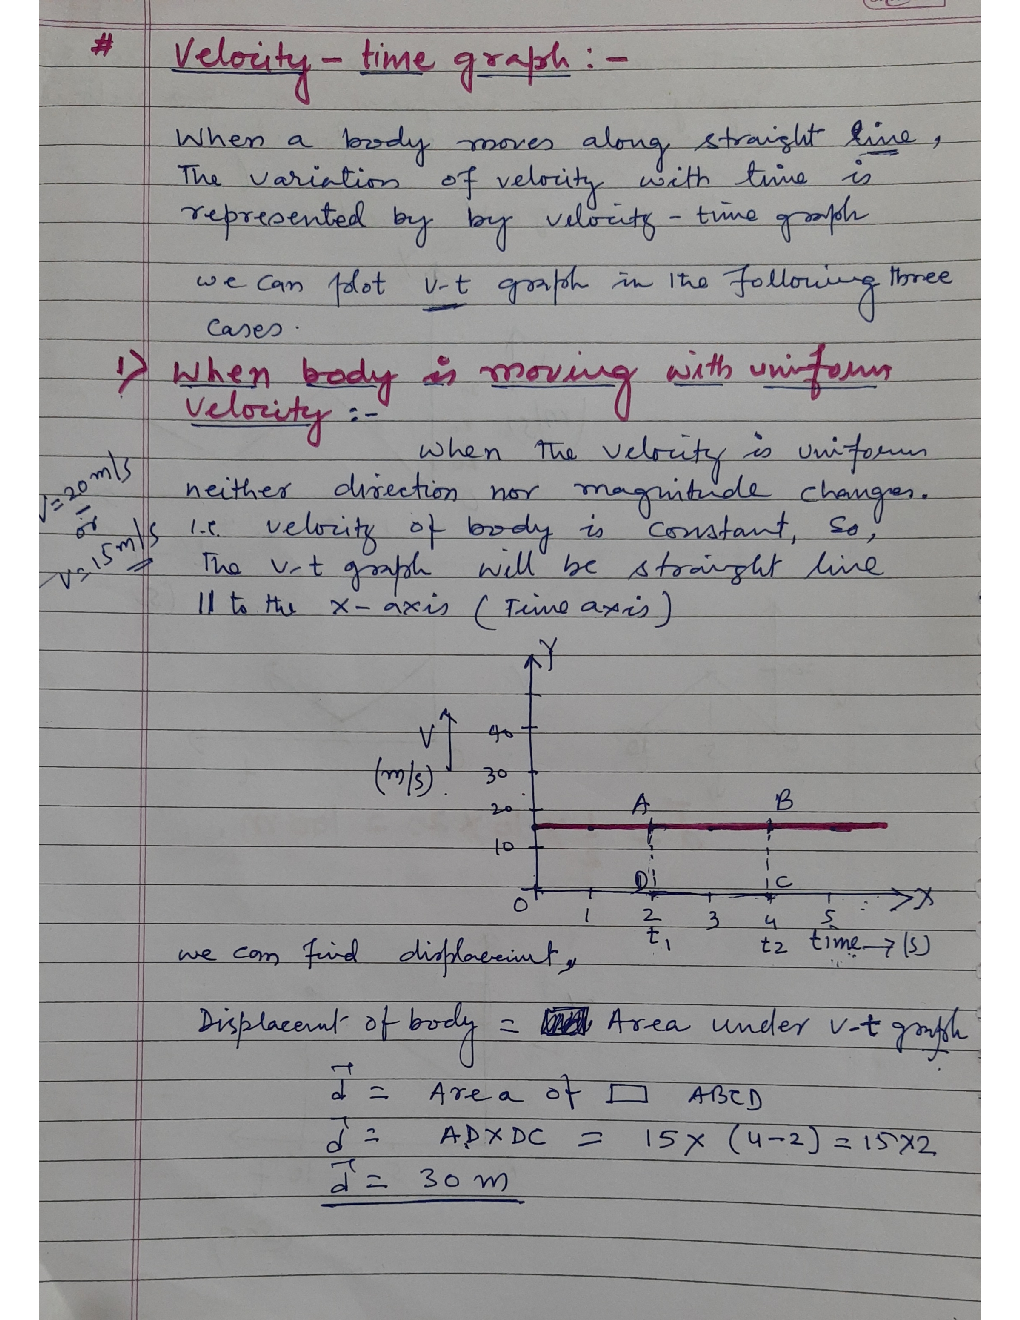 # Velocity - time graph :-
When a body moves along straight line,
The variation of velocity with time is
represented by by velocity - time graph
we can plot v-t graph in the following three
cases.
1) When body is moving with uniform
velocity :-
when the velocity is uniform
neither direction nor magnitude changes.
V=20 m/s
or
V=15 m/s
i.e. velocity of body is constant, so,
The v-t graph will be straight line
|| to the x-axis (Time axis)
Y
V
(m/s)
40
30
20
10
A B
D C
0 1 2 3 4 5 X
t1 t2 time → (s)
we can find displacement,
Displacemnt of body = Area under v-t graph.
d⃗ = Area of ▭ ABCD
d⃗ = AD X DC = 15 X (4-2) = 15X2
d⃗ = 30 m